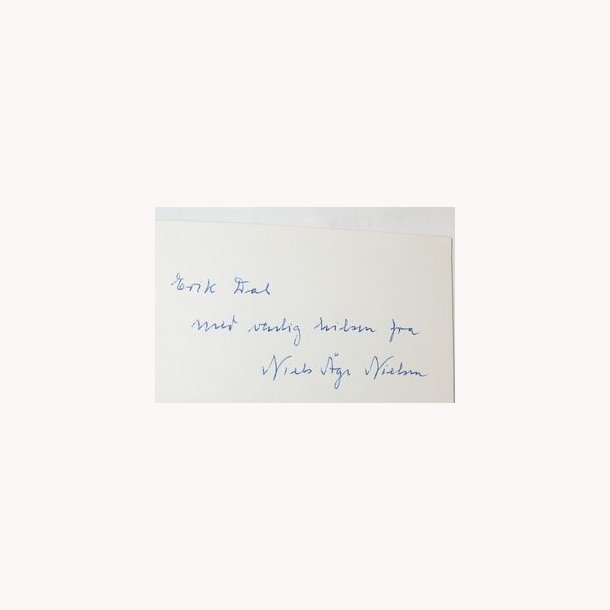 Erik Dal
med venlig hilsen fra
Niels Åge Nielsen